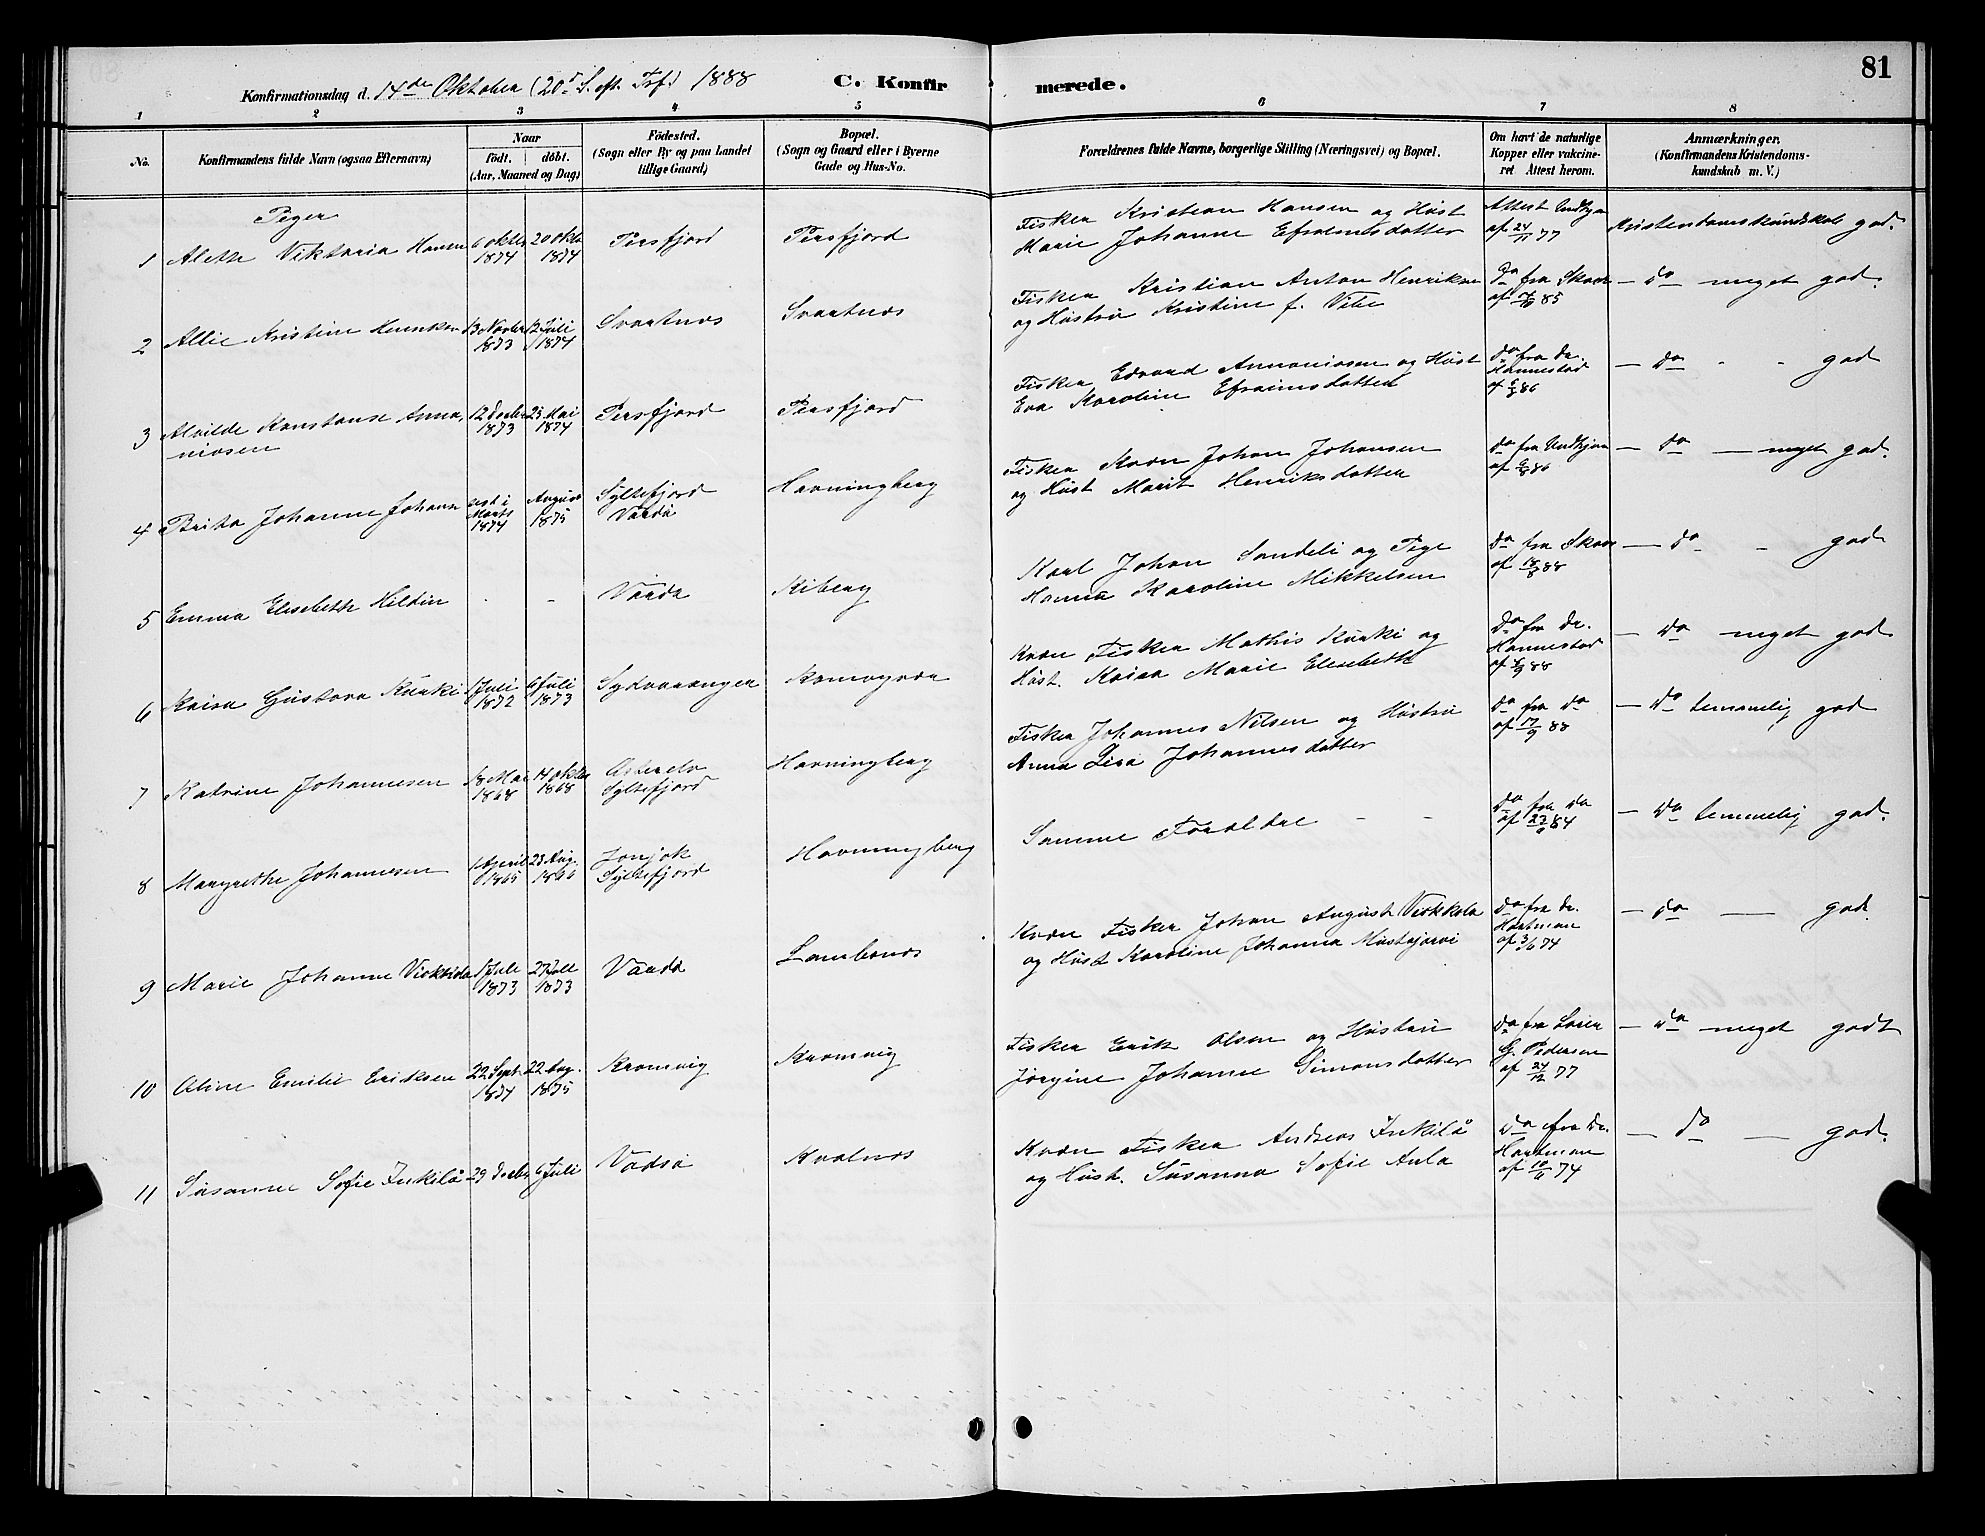 81
Konfirmationsdag d. 14de Oktober (20d S. eft. Trf.) 1888 C. Konfirmerede.
1 2 3 4 5 6 7 8
No.
Konfirmandens fulde Navn (ogsaa Efternavn)
Naar
födt. döbt.
(Aar, Maaned og Dag)
Födested.
(Sogn eller By og paa Landet
tillige Gaard)
Bopæl.
(Sogn og Gaard eller i Byerne
Gade og Hus-No.
Forældrenes fulde Navne, borgerlige Stilling (Næringsvei) og Bopæl.
Om havt de naturlige
Kopper eller vakcine-
ret Attest herom.
Anmærkninger.
(Konfirmandens Kristendoms-
kundskab m. V.)
Piger
1 Alette Viktoria Hansen
6 oktbr 1874
20 oktbr 1874
Persfjord
Persfjord
Fisker Kristian Hansen og Hust
Marie Johanne Efraimsdatter
Attest
af 24/11 77
Kristendomskundskab god.
2 Allie Kristine Henriksen
13 Novbr 1873
12 Juli 1874
Svartnes
Svartnes
Fisker Kristian Anton Henriksen
og Hustru Kristine f. Vibe
do fra
85
— do meget god.
3 Alvilde Konstanse Anna-
niasen
12 Decbr 1873
23 Mai 1874
Persfjord
Persfjord
Fisker Edvard Annaniassen og Hust
Eva Karoline Efraimsdatter
do fra dr.
Hannestad
86
— do - - god
4 Brita Johanne Johansen
sest i Marts 1874
August 1875
Syltefjord
Vardö
Havningberg
Fisker Kvæn Johan Johansen
og Hust Marit Henriksdatter
do fra
86
— do — meget god.
5 Emma Elisebeth Hildin
- -
Vardö
Kiberg
Karl Johan Sandeli og Pige
Hanna Karoline Mikkelsen
do fra
af 18/8 88
— do - god
6 Kaisa Gustava Kurki
Juli 1872
Juli 1873
Sydvaranger
Komagvær
Kvæn Fisker Mathis Kurki og
Hust. Kaisa Marie Elisebeth
do fra dr.
Hannestad
88
— do meget god
7 Katrine Johannesen
18 Mai 1868
14 oktbr 1868
Syltefjord
Havningberg
Fisker Johannes Nilsen og Hustru
Anna Lisa Johannesdatter
do fra do
af 17/9 88
— do temmelig god
8 Margrethe Johannesen
April 1865
23 Aug. 1866
Syltefjord
Havningberg
Samme Forældre - -
do fra do
84
— do temmelig god.
9 Marie Johanne Virkkola
Juli 1873
27 Juli 1873
Vardö
Lambenes
Kvæn Fisker Johan August Virkkola
og Hust Karoline Johanna Mustajärvi
do fra dr.
Hartman
af 3/6 74
— do — god
10 Aline Emilie Eriksen
22 Sept. 1874
22 Aug. 1875
Kramvig
Kramvig
Fisker Erik Olsen og Hustru
Jørgine Johanne Simonsdatter
do fra
G. Pedersen
af 24/12 77
— do meget godt
11 Susanne Sofie Inkilå
29 Decbr
6 Juli
Vadsö
Kvalnes
Kvæn Fisker Andreas Inkilå
og Hust. Susanna Sofie Aula
do fra dr.
Hartman
74
— do — god.